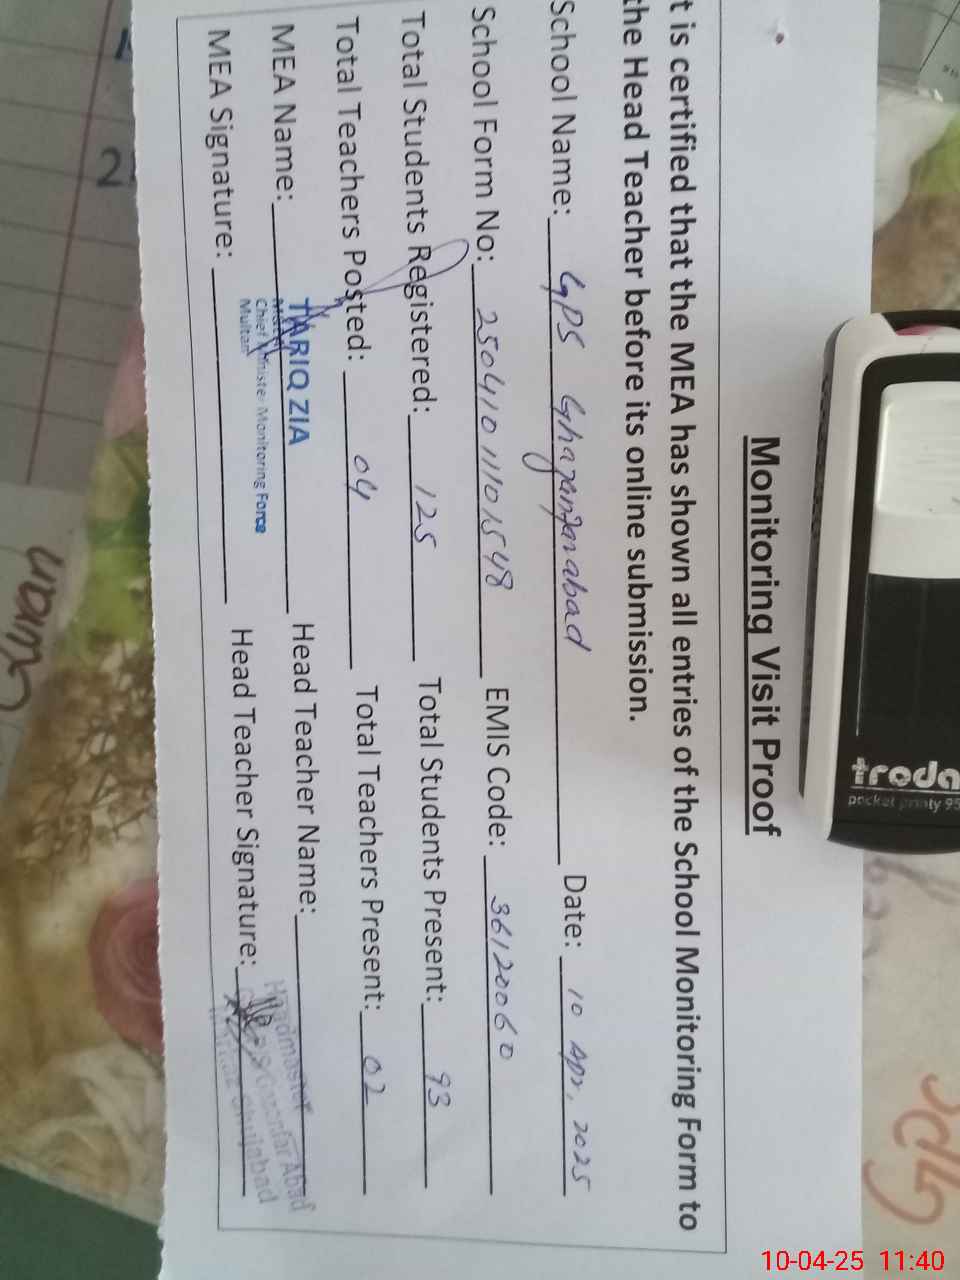 Monitoring Visit Proof
t is certified that the MEA has shown all entries of the School Monitoring Form to
the Head Teacher before its online submission.
School Name: GPS Ghazanfarabad Date: 10 Apr, 2025
School Form No: 25041011101548 EMIS Code: 36120060
Total Students Registered: 125 Total Students Present: 93
Total Teachers Posted: 04 Total Teachers Present: 02
MEA Name: TARIQ ZIA Head Teacher Name:
Chief Minister Monitoring Force
Multan
MEA Signature: Head Teacher Signature:
Headmaster
Abad
Shujabad
troda
pocket printy 95
10-04-25 11:40